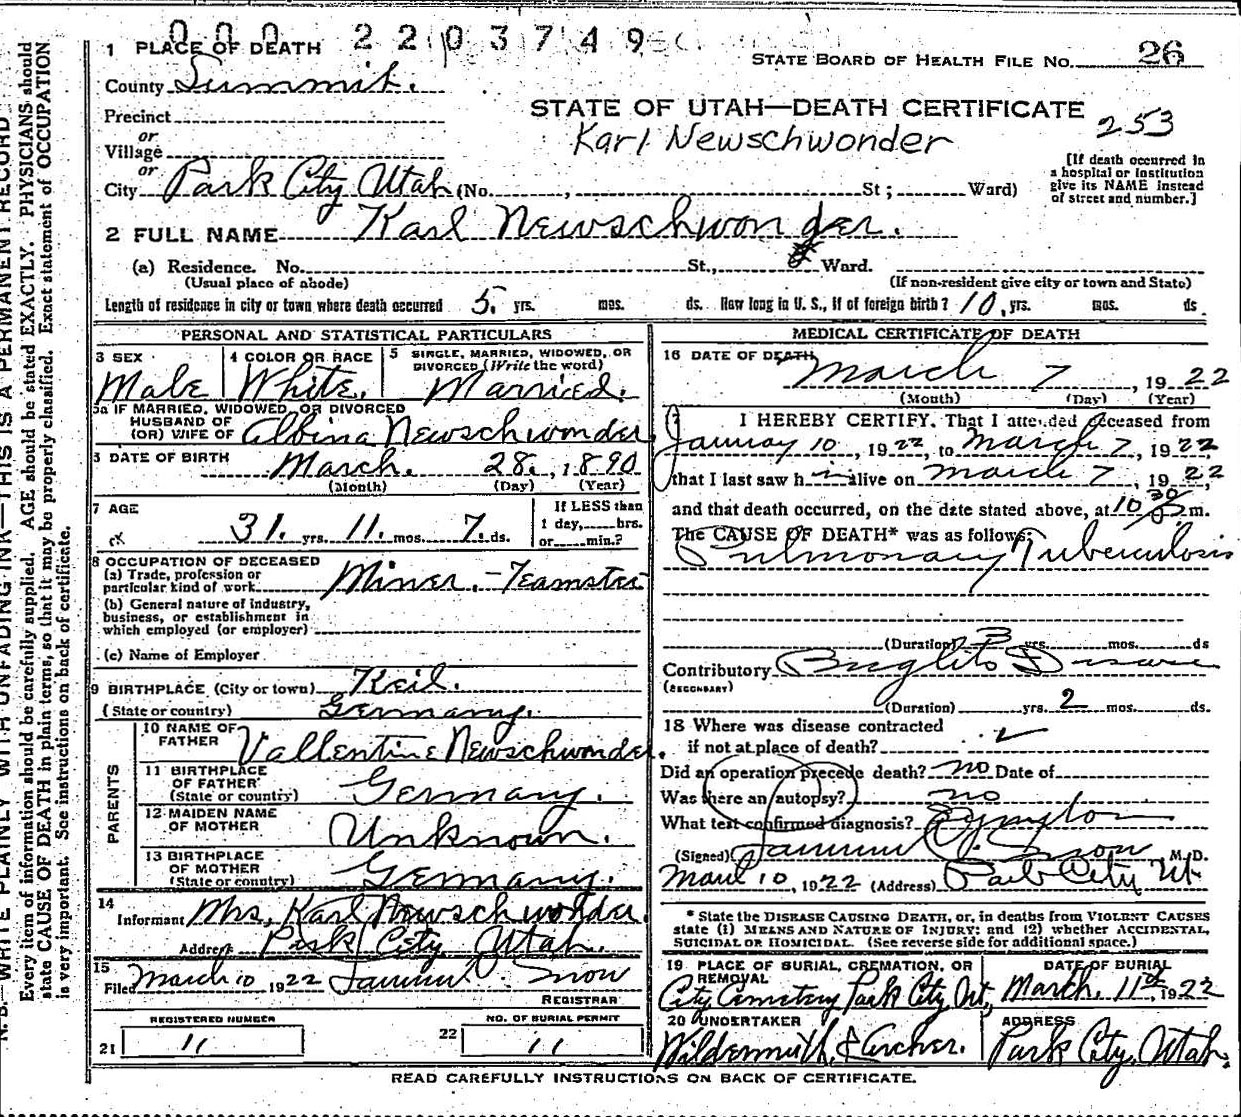 000 2203749
26
1 PLACE OF DEATH
STATE BOARD OF HEALTH FILE NO.
County Summit.
STATE OF UTAH—DEATH CERTIFICATE
253
Precinct
Karl Newschwonder
or
Village
or
City Park City Utah (No. , St; Ward)
[If death occurred in
a hospital or institution
give its NAME instead
of street and number.]
2 FULL NAME Karl Newschwonder.
(a) Residence. No. St., Ward.
(Usual place of abode)
(If non-resident give city or town and State)
Length of residence in city or town where death occurred 5. yrs. mos. ds. How long in U. S., if of foreign birth? 10, yrs. mos. ds.
PERSONAL AND STATISTICAL PARTICULARS
3 SEX
Male
4 COLOR OR RACE
White.
5 SINGLE, MARRIED, WIDOWED, OR
DIVORCED (Write the word)
Married.
5a IF MARRIED, WIDOWED, OR DIVORCED
HUSBAND OF
(OR) WIFE OF Albina Newschwonder,
DATE OF BIRTH March. 28. , 1890
(Month) (Day) (Year)
7 AGE
31. yrs. 11. mos. 7. ds.
If LESS than
1 day, hrs.
or min.?
8 OCCUPATION OF DECEASED
(a) Trade, profession or
particular kind of work Miner. - Teamster
(b) General nature of industry,
business, or establishment in
which employed (or employer)
(c) Name of Employer
9 BIRTHPLACE (City or town) Keil.
(State or country) Germany.
PARENTS
10 NAME OF
FATHER Vallentine Newschwonder.
11 BIRTHPLACE
OF FATHER
(State or country) Germany.
12 MAIDEN NAME
OF MOTHER Unknown.
13 BIRTHPLACE
OF MOTHER
(State or country) Germany.
14
Informant Mrs, Karl Newschwonder.
Address Park City, Utah.
15
Filed March 10 1922 Snow
REGISTRAR
REGISTERED NUMBER
21 11
NO. OF BURIAL PERMIT
22 11
MEDICAL CERTIFICATE OF DEATH
16 DATE OF DEATH
March 7 , 1922
(Month) (Day) (Year)
I HEREBY CERTIFY. That I attended deceased from
January 10, 1922, to March 7, 1922,
that I last saw h alive on March 7, 1922,
and that death occurred, on the date stated above, at 10 30 m.
The CAUSE OF DEATH* was as follows:
Pulmonary Tuberculosis
(Duration) 3 yrs. mos. ds
Contributory Disease
(SECONDARY)
(Duration) yrs. 2 mos. ds.
18 Where was disease contracted
if not at place of death?
Did an operation precede death? no Date of
Was there an autopsy? no
What test confirmed diagnosis?
(Signed) Snow M. D.
10, 1922 (Address) Park City Ut
* State the DISEASE CAUSING DEATH, or, in deaths from VIOLENT CAUSES
state (1) MEANS AND NATURE OF INJURY; and (2) whether ACCIDENTAL,
SUICIDAL OR HOMICIDAL. (See reverse side for additional space.)
19 PLACE OF BURIAL, CREMATION, OR
REMOVAL
City Cemetery Park City, Ut,
DATE OF BURIAL
March, 11th, 1922
20 UNDERTAKER
Archer.
ADDRESS
Park City, Utah.
READ CAREFULLY INSTRUCTIONS ON BACK OF CERTIFICATE.
N. B.—WRITE PLAINLY WITH UNFADING INK—THIS IS A PERMANENT RECORD
Every item of information should be carefully supplied. AGE should be stated EXACTLY. PHYSICIANS should
state CAUSE OF DEATH in plain terms, so that it may be properly classified. Exact statement of OCCUPATION
is very important. See instructions on back of certificate.